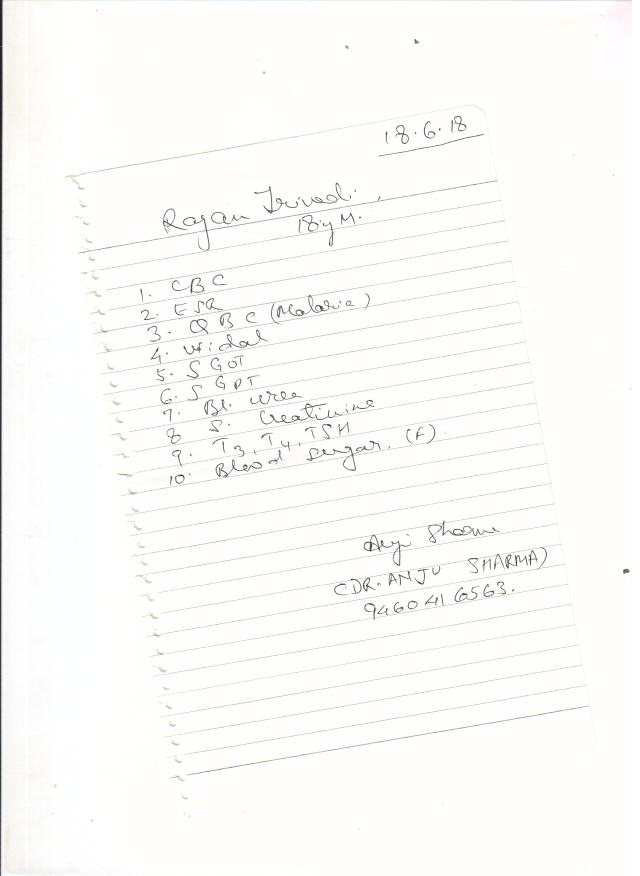 18.6.18
Rajan Trivedi.
18 y M.
1. CBC
2. ESR
3. QBC (Malaria)
4. Widal
5. SGOT
6. SGPT
7. Bl. urea
8 S. Creatinine
9. T3, T4, TSH
10. Blood Sugar. (F)
Anju Sharma
(DR. ANJU SHARMA)
9460416563.